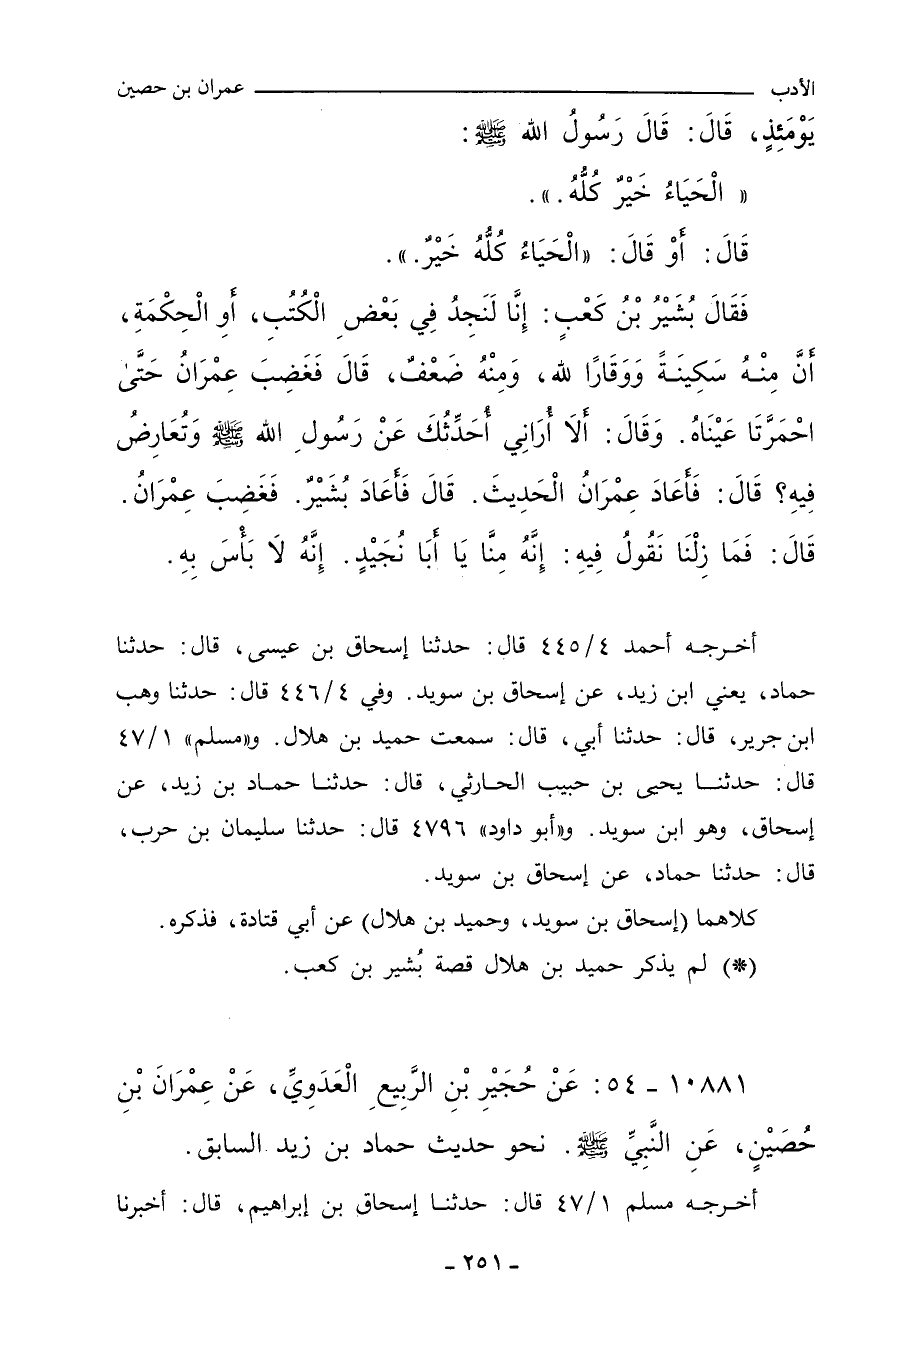 الأدب ــــــــــــــــــــ عمران بن حصين
يَوْمَئِذٍ، قَالَ: قَالَ رَسُولُ الله ﷺ:
« الْحَيَاءُ خَيْرٌ كُلُّهُ.».
قَالَ: أَوْ قَالَ: «الْحَيَاءُ كُلُّهُ خَيْرٌ.».
فَقَالَ بُشَيْرُ بْنُ كَعْبٍ: إِنَّا لَنَجِدُ فِي بَعْضِ الْكُتُبِ، أَوِ الْحِكْمَةِ،
أَنَّ مِنْهُ سَكِينَةً وَوَقَارًا لله، وَمِنْهُ ضَعْفٌ، قَالَ فَغَضِبَ عِمْرَانُ حَتَّىٰ
احْمَرَّتَا عَيْنَاهُ. وَقَالَ: أَلَا أُرَانِي أُحَدِّثُكَ عَنْ رَسُولِ الله ﷺ وَتُعَارِضُ
فِيهِ؟ قَالَ: فَأَعَادَ عِمْرَانُ الْحَدِيثَ. قَالَ فَأَعَادَ بُشَيْرٌ. فَغَضِبَ عِمْرَانُ.
قَالَ: فَمَا زِلْنَا نَقُولُ فِيهِ: إِنَّهُ مِنَّا يَا أَبَا نُجَيْدٍ. إِنَّهُ لَا بَأْسَ بِهِ.
أخرجه أحمد ٤/٤٤٥ قال: حدثنا إسحاق بن عيسى، قال: حدثنا
حماد، يعني ابن زيد، عن إسحاق بن سويد. وفي ٤/٤٤٦ قال: حدثنا وهب
ابن جرير، قال: حدثنا أبي، قال: سمعت حميد بن هلال. و«مسلم» ١/٤٧
قال: حدثنا يحيى بن حبيب الحارثي، قال: حدثنا حماد بن زيد، عن
إسحاق، وهو ابن سويد. و«أبو داود» ٤٧٩٦ قال: حدثنا سليمان بن حرب،
قال: حدثنا حماد، عن إسحاق بن سويد.
كلاهما (إسحاق بن سويد، وحميد بن هلال) عن أبي قتادة، فذكره.
(*) لم يذكر حميد بن هلال قصة بُشير بن كعب.
١٠٨٨١ - ٥٤: عَنْ حُجَيْرِ بْنِ الرَّبِيعِ الْعَدَوِيِّ، عَنْ عِمْرَانَ بْنِ
حُصَيْنٍ، عَنِ النَّبِيِّ ﷺ. نحو حديث حماد بن زيد السابق.
أخرجه مسلم ١/٤٧ قال: حدثنا إسحاق بن إبراهيم، قال: أخبرنا
- ٢٥١ -